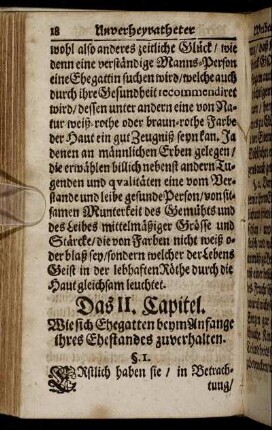 18 Unverheyratheter
wohl also anderes zeitliche Glück/ wie
denn eine verständige Manns-Person
eine Ehegattin suchen wird/ welche auch
durch ihre Gesundheit recommendiret
wird/ dessen unter andern eine von Na-
tur weiß-rothe oder braun-rothe Farbe
der Haut ein gut Zeugniß seyn kan. Ja
denen an männlichen Erben gelegen/
die erwählen billich nebenst andern Tu-
genden und qvalitäten eine vom Ver-
stande und leibe gesunde Person/ von sit-
samen Munterkeit des Gemühts und
des Leibes mittelmäßiger Grösse und
Stärcke/ die von Farben nicht weiß o-
der blaß sey/ sondern welcher der Lebens
Geist in der lebhafften Röthe durch die
Haut gleichsam leuchtet.
Das II. Capitel.
Wie sich Ehegatten beym Anfange
ihres Ehestandes zuverhalten.
§. 1.
ERstlich haben sie/ in Betrach-
tung/